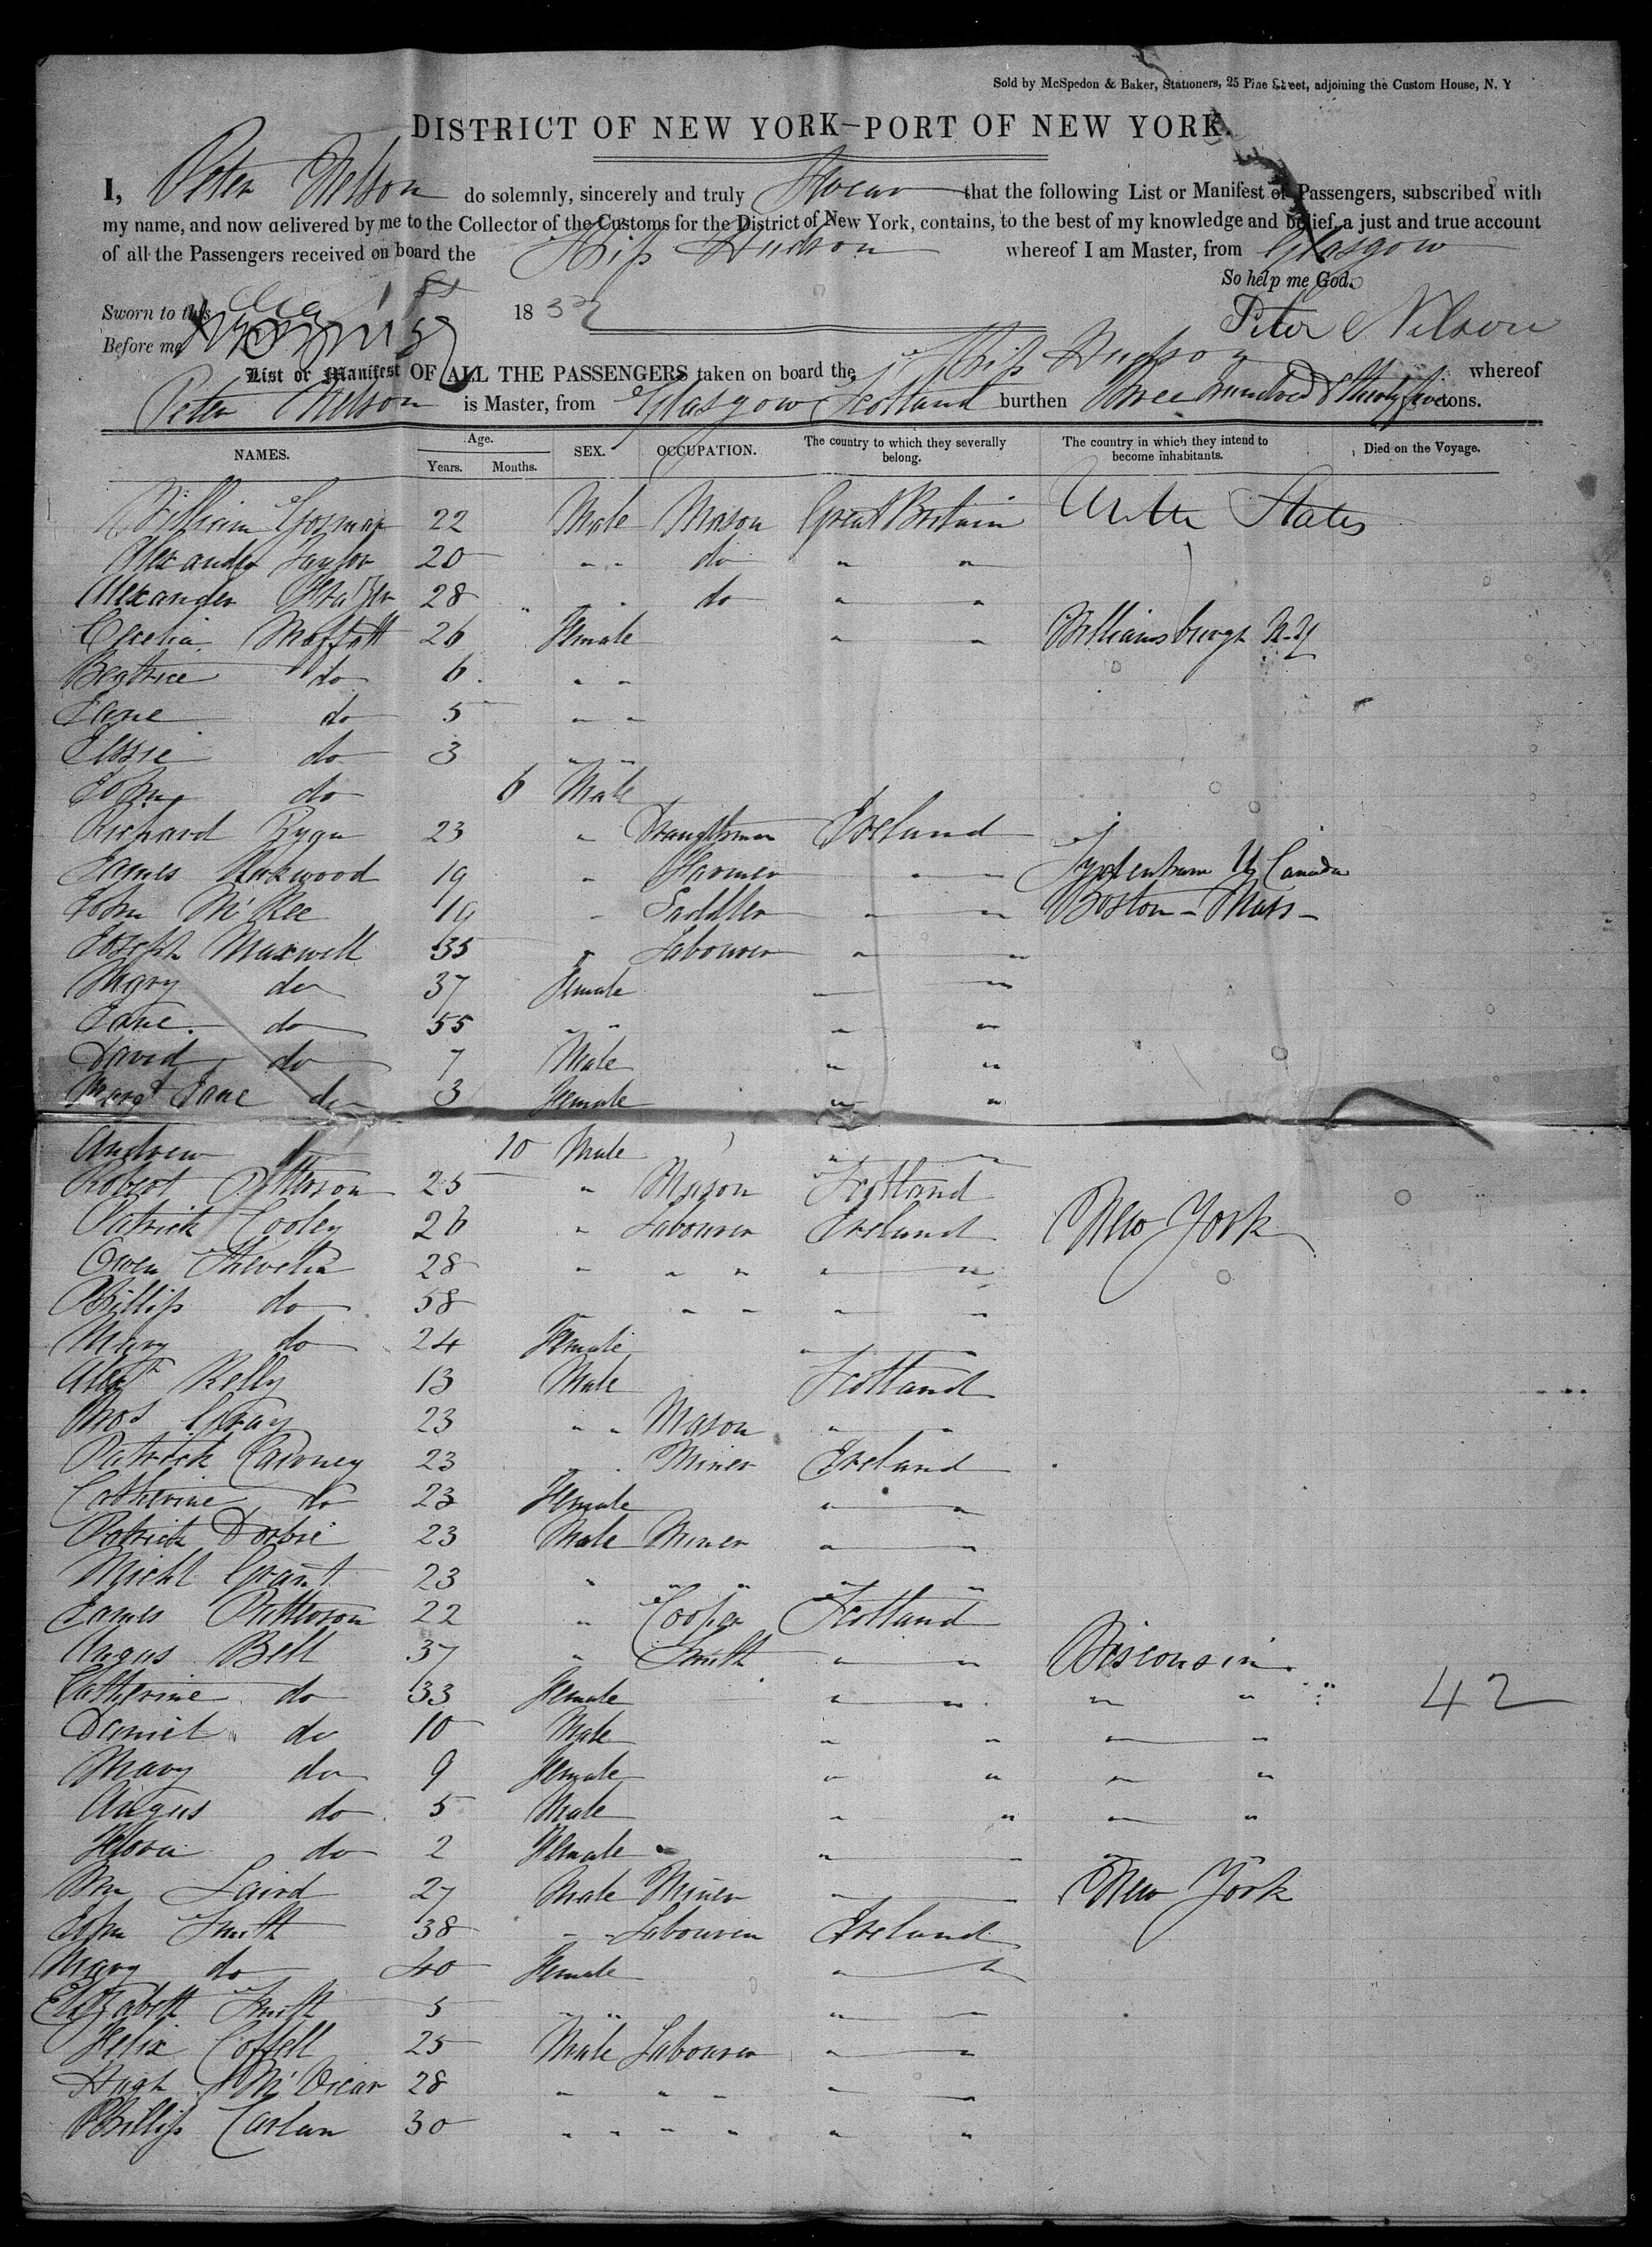 Sold by McSpedon & Baker, Stationers, 25 Pine Street, adjoining the Custom House, N. Y
DISTRICT OF NEW YORK—PORT OF NEW YORK.
I, Peter Nelson do solemnly, sincerely and truly Swear that the following List or Manifest of Passengers, subscribed with
my name, and now delivered by me to the Collector of the Customs for the District of New York, contains, to the best of my knowledge and belief, a just and true account
of all the Passengers received on board the Ship Hudson whereof I am Master, from Glasgow
So help me God.
Sworn to this 1st 18 Peter Nelson
Before me
List or Manifest OF ALL THE PASSENGERS taken on board the Ship Hudson whereof
Peter Nelson is Master, from Glasgow Scotland burthen Three hundred & tons.
NAMES. Age. Years. Months. SEX. OCCUPATION. The country to which they severally belong. The country in which they intend to become inhabitants. Died on the Voyage.
William 22 Male Mason Great Britain United States
Alexander Taylor 20 " " do " "
Alexander Frazer 28 " " do " "
Cecelia Moffatt 26 Female " " Williamsburgh N.Y
Beatrice do 6 " "
Jane do 5 " "
Jessie do 3 " "
John do 6 Male
Richard Ryan 23 " Draughtsman Ireland
James Kirkwood 19 " Farmer " " U. Canada
John McKee 19 " Saddler " " Boston - Mass -
Joseph Maxwell 35 " Labourer " "
Mary do 37 Female " "
Jane do 55 " " " "
David do 7 Male " "
Margt Jane do 3 Female " "
Andrew 10 Male " "
Robert Patterson 25 " Mason Scotland
Patrick Cooley 26 " Labourer Ireland New York
Owen 28 " " " " "
Phillip do 58 " " " " "
Mary do 24 Female " "
Kelly 13 Male Scotland
Thos Gray 23 " " Mason " "
Patrick Cairney 23 " " Miner Ireland
Catherine do 23 Female " "
Patrick Dorbie 23 Male Miner " "
Michl Grant 23 " " " " "
James Patterson 22 " Cooper Scotland
Angus Bell 37 " Smith " " Wisconsin
Catherine do 33 Female " " " " 42
Daniel do 10 Male " " " "
Mary do 9 Female " " " "
Angus do 5 Male " " " "
Flora do 2 Female " "
Wm Laird 27 Male Miner " " New York
John Smith 38 " " Labourer Ireland
Mary do 40 Female " "
Elizabeth Smith 5 " " " "
Felix Coffell 25 Male Labourer " "
Hugh McVicar 28 " " " " "
Phillip Carlan 30 " " " " " "